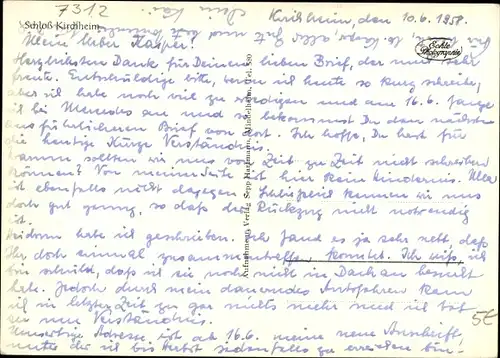 7312
Schloß Kirchheim
Kirchheim, den 10.6.1958.
Mein lieber Kasper!
Echte Photographie
Herzlichsten Dank für Deinen lieben Brief, der mich sehr
freute. Entschuldige bitte, wenn ich heute so kurz schreibe,
aber ich habe noch viel zu erledigen und am 16.6. fange
ich bei Mercedes an und so bekommst Du dann nächstens
ausführlicheren Brief von dort. Ich hoffe, Du hast für
die heutige Kürze Verständnis.
Warum sollten wir uns von Zeit zu Zeit nicht schreiben
können? Von meiner Seite ist kein Hindernis.
ist ebenfalls nicht dagegen. Schließlich kennen wir uns
doch gut genug, so daß der Rückzug nicht notwendig
ist.
habe ich geschrieben. Ich fand es ja sehr nett, daß
Ihr doch einmal zusammentreffen konntet. Ich
daß ich sie noch nicht in Dachau besucht
habe. Jedoch durch mein dauerndes Autofahren kam
ich in letzter Zeit zu gar nichts mehr und ich bitte
um Verständnis.
Adresse ab 16.6. meine neue Anschrift,
unter der ich bis Herbst jedenfalls zu erreichen bin.
5€
Aufnahme u. Verlag Sepp Hartmann, Mindelheim, Tel. 580